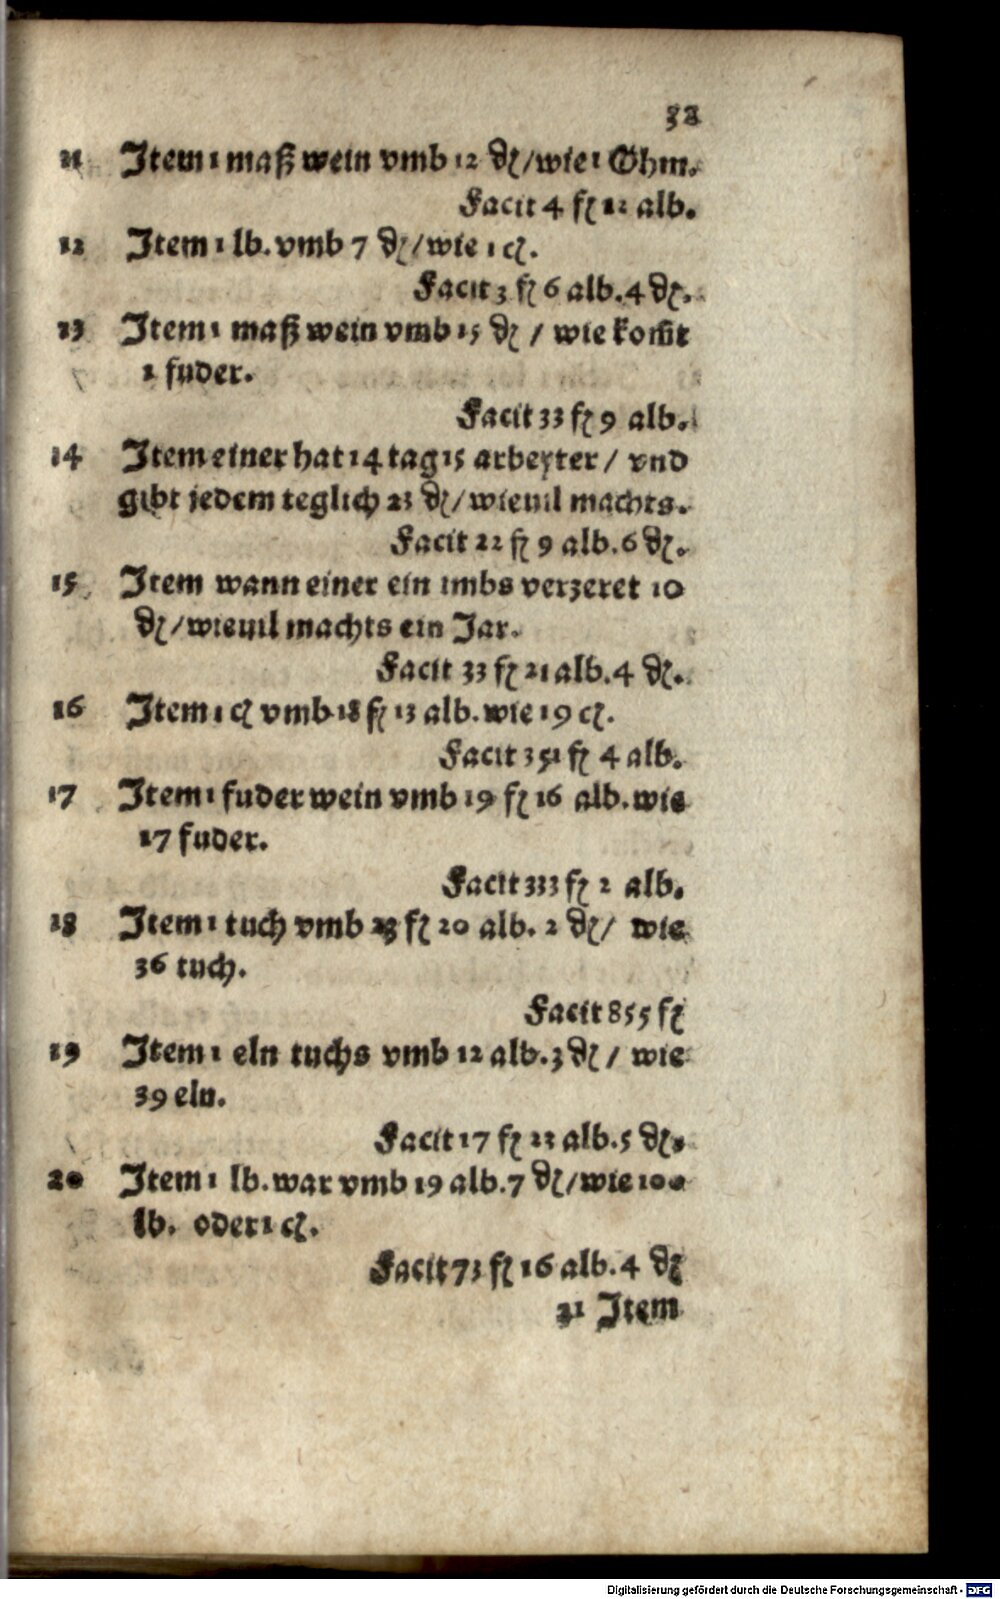 32
11 Item 1 maß wein vmb 12 ₰/wie 1 Ohm.
Facit 4 fl 12 alb.
12 Item 1 lb. vmb 7 ₰/wie 1 cl.
Facit 3 fl 6 alb. 4 ₰.
13 Item 1 maß wein vmb 15 ₰ / wie kom̄t
1 fuder.
Facit 33 fl 9 alb.
14 Item einer hat 14 tag 15 arbeyter / vnd
gibt jedem teglich 23 ₰/wieuil machts.
Facit 22 fl 9 alb. 6 ₰.
15 Item wann einer ein imbs verzeret 10
₰/wieuil machts ein Jar.
Facit 33 fl 21 alb. 4 ₰.
16 Item 1 cl vmb 18 fl 13 alb. wie 19 cl.
Facit 351 fl 4 alb.
17 Item 1 fuder wein vmb 19 fl 16 alb. wie
17 fuder.
Facit 333 fl 2 alb.
18 Item 1 tuch vmb 23 fl 20 alb. 2 ₰/ wie
36 tuch.
Facit 855 fl
19 Item 1 eln tuchs vmb 12 alb. 3 ₰ / wie
39 eln.
Facit 17 fl 23 alb. 5 ₰.
20 Item 1 lb. war vmb 19 alb. 7 ₰/wie 100
lb. oder 1 cl.
Facit 73 fl 16 alb. 4 ₰
21 Item
Digitalisierung gefördert durch die Deutsche Forschungsgemeinschaft - DFG